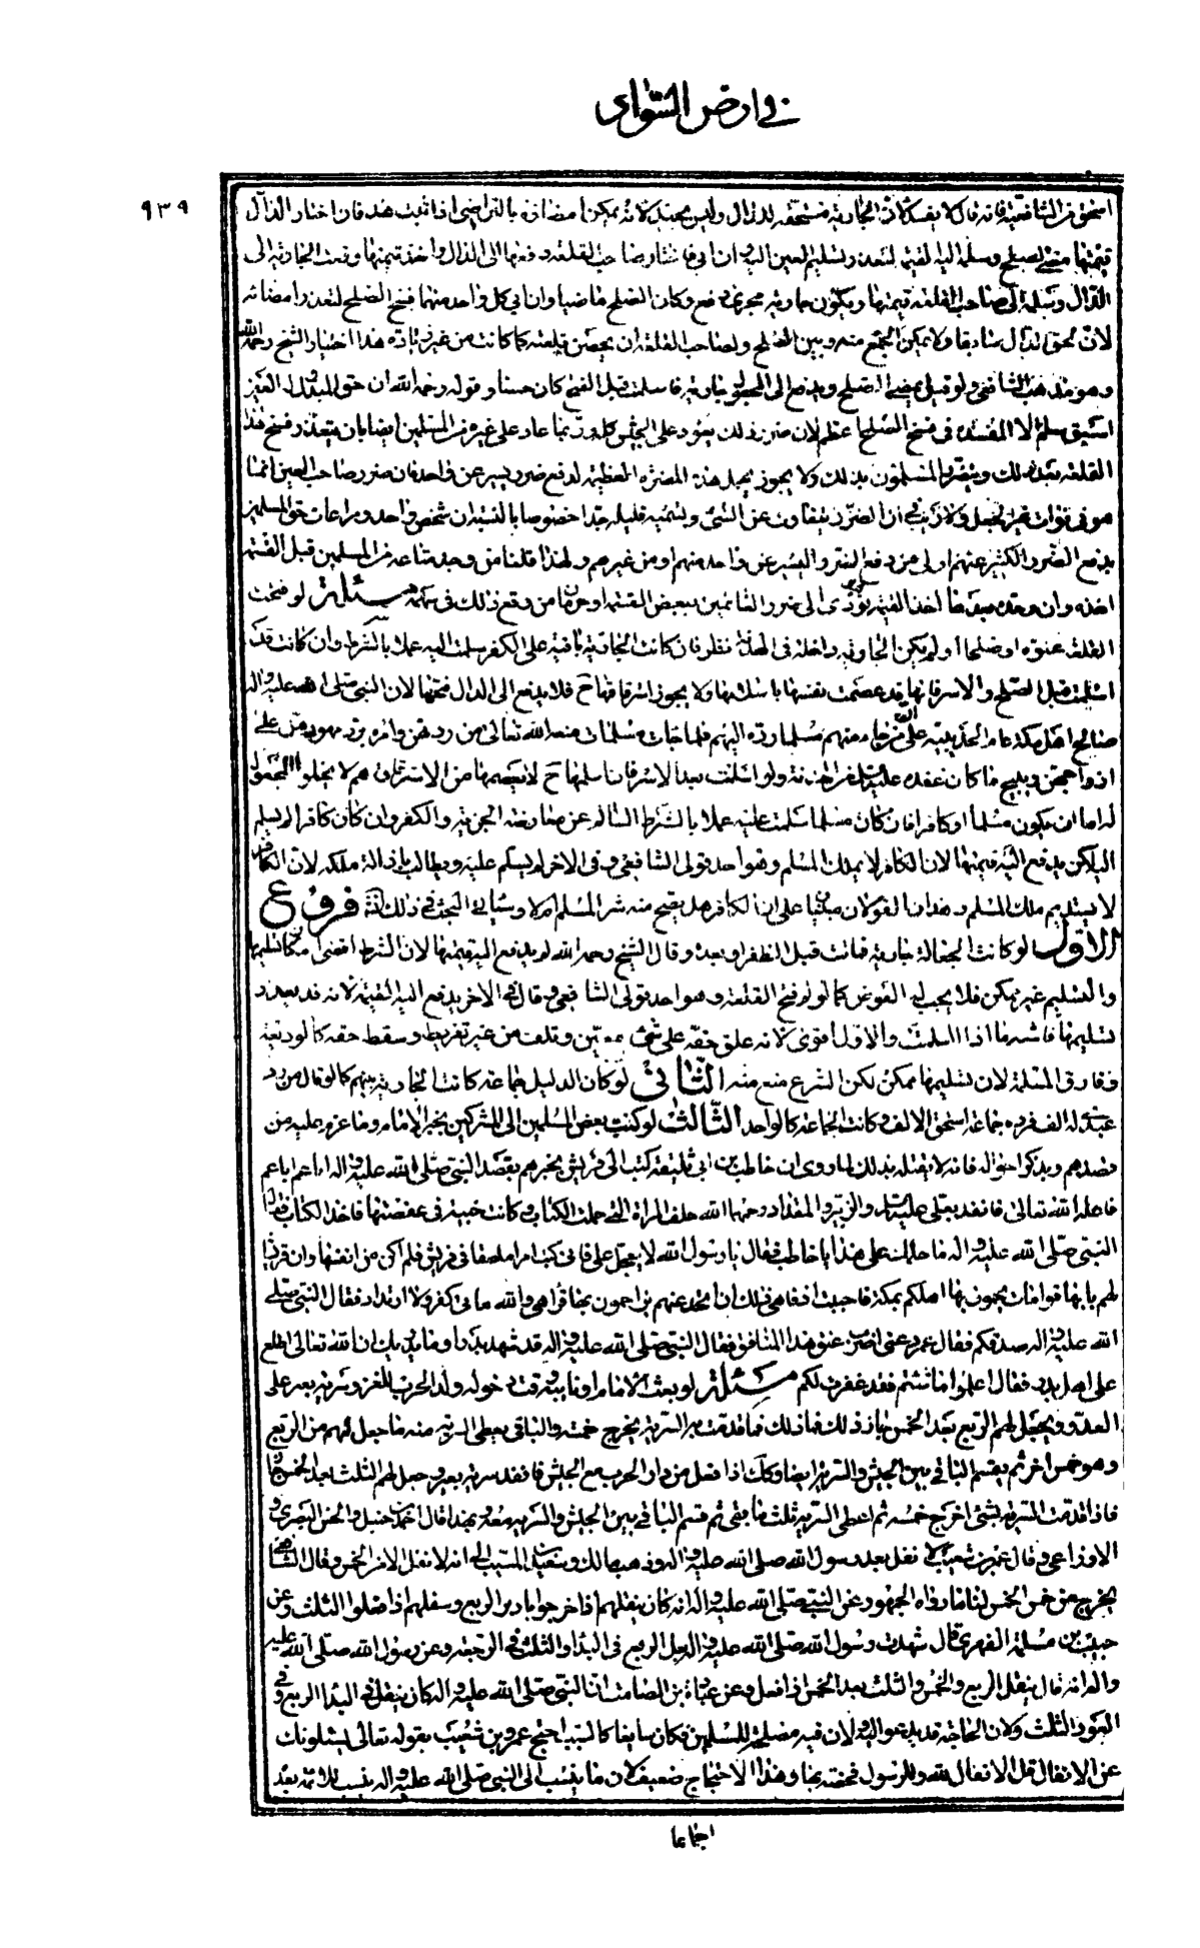 في ارض السواد
٩٣٩
اسحق من الشافعية فانه قال لا يفسد لان الجارية مستحقه للدال وليس بجيد لانه يمكن امضاؤه بالتراضي اذا ثبت هذا فان اختار الدال
قيمتها مضى الصلح وسلم اليه القيمة لتعذر تسليم العين اليه وان ابى فاختار صاحب القلعة دفعها الى الدال واخذ قيمتها دفعت الجارية الى
الدال وسلم الى صاحب القلعة قيمتها ويكون جارية مجرى دفع وكان الصلح ماضيا وان ابى كل واحد منهما فسخ الصلح لتعذر امضائه
لان حق الدال سابق ولا يمكن الجمع منه وبين الصلح ولصاحب القلعة ان يحصن قلعته كما كانت من غير زيادة هذا اختيار الشيخ رحمه الله
وهو مذهب الشافعي ولو قيل يمضي الصلح ويدفع الى المجعول له جارية فاسلمت قبل الفتح كان حسنا وقوله رحمه الله ان حق المبذول له العين
اسبق مسلم الا المفسدة في فسخ الصلح اعظم لان ضرر ذلك يعود على الجيش كله وربما عاد على غيره من المسلمين ايضا بان يتعذر فتح هذه
القلعة بعد ذلك ويتضرر المسلمون بذلك ولا يجوز تحمل هذه المضرة العظيمة لدفع ضرر يسير عن واحد فان ضرر صاحب العين انما
هو في فوات عين الجعل ولا ريب في ان الضرر بتفاوت عين الشئ وقيمته قليلة جدا خصوصا بالنسبة الى شخص واحد ومراعات حق المسلمين
بدفع الضرر الكثير عنهم اولى من دفع الضرر اليسير عن واحد منهم او من غيرهم ولهذا قلنا من وجد متاعه من المسلمين قبل القسمة
اخذه وان وجده بعدها اخذ القيمة لئلا يؤدي الى ضرر الغانمين ببعض القسمة او حرمان من وقع ذلك في سهمه مسئلة لو فتحت
القلعة عنوة او صلحا ولم يكن الجارية داخلة في الهدنة نظر فان كانت الجارية باقية على الكفر سلمت اليه عملا بالشرط وان كانت قد
اسلمت قبل الصلح والاسر فانها قد عصمت نفسها باسلامها ولا يجوز استرقاقها ح فلا يدفع الى الدال قيمتها لان النبي صلى الله عليه واله
صالح اهل مكة عام الحديبية على ان من جاء منهم مسلما رده اليهم فلما جاءت مسلمات منعه الله تعالى من ردهن وامره برد مهورهن على
ازواجهن ويبيح ما كان عقده عليه السلام من الهدنة ولو اسلمت بعد الاسر فان اسلامها ح لا يعصمها من الاسترقاق ثم لا يخلو المجعول
له اما ان يكون مسلما او كافرا فان كان مسلما سلمت عليه عملا بالشرط السالم عن معارضة الحرية والكفر وان كان كافرا لم يسلم
اليه لكن يدفع اليه قيمتها لان الكافر لا يملك المسلم وهو احد قولي الشافعي وفي الاخر له يسلم عليه ويطالب بازالة ملكه لان الكافر
لا يستديم ملك المسلم وهذان القولان مبنيان على ان الكافر هل يصح منه شراء المسلم ام لا وسياتي البحث في ذلك انشاء الله فروع
الاول لو كانت الجعالة بجارية فماتت قبل الظفر او بعده وقال الشيخ رحمه الله لم يدفع اليه قيمتها لان الشرط اقتضى امكان تسليمها
والتسليم غير ممكن فلا يجب له العوض كما لو لم يفتح القلعة وهو احد قولي الشافعي وقال في الاخر يدفع اليه القيمة لانه قد تعذر
تسليمها فاشبه ما اذا اسلمت والاول اقوى لانه علق حقه على شئ معين وتلف من غير تفريط وسقط حقه كالوديعة
وفارق المسلمة لان تسليمها ممكن لكن الشرع منع منه الثاني لو كان الدليل جماعة كانت الجارية بينهم كما لو قال من رد
عبدي له الف فرده جماعة استحق الالف وكانت الجماعة كالواحد الثالث لو كتب بعض المسلمين الى المشركين بخبر الامام وما عزم عليه من
قصدهم ويذكر احواله فانه لا يقتل بذلك لما روى ان حاطب بن ابي بلتعة كتب الى قريش يخبرهم بقصد النبي صلى الله عليه واله اياهم
فاعلم الله تعالى فانفذ بعلي عليه السلام والزبير والمقداد رحمهما الله خلف المراة التي حملت الكتاب وكانت خبيته في عقصتها فاخذ الكتاب فقال
النبي صلى الله عليه واله ما حملك على هذا يا حاطب فقال يا رسول الله لا تعجل علي فاني كنت امرا ملصقا في قريش فلم اكن من انفسها وان قريشا
لهم بها قرابات يحمون بها اهلكم بمكة فاحببت اذ فاتني ذلك ان اتخذ عندهم يدا يحمون بها قرابتي والله ما بي كفر ولا ارتداد فقال النبي صلى
الله عليه واله صدقكم فقال عمر دعني اضرب عنق هذا المنافق فقال النبي صلى الله عليه واله قد شهد بدرا وما يدريك ان الله تعالى اطلع
على اهل بدر فقال اعملوا ما شئتم فقد غفرت لكم مسئلة لو بعث الامام او نايبه وقت دخوله دار الحرب للغزو سرية بعد على
العدو ويجعل لهم الربع بعد الخمس جاز ذلك فاذا ذلك فما قدمت به السرية يخرج خمسه والباقي يعطى السرية منه ما جعل لهم من الربع
وهو خمس اخر ثم يقسم الباقي بين الجيش والسرية ايضا وكك اذا قفل من دار الحرب مع الجيش فانفذ سرية بعيره وجعل لهم الثلث بعد الخمس جاز
فاذا قدمت السرية بشئ اخرج خمسه ثم اعطى السرية ثلث ما بقى ثم قسم الباقي بين الجيش والسرية معه وبهذا قال احمد بن حنبل والحسن البصري و
الاوزاعي وقال عمرو بن شعيب لا نفل بعد رسول الله صلى الله عليه واله وذهب مالك وسعيد بن المسيب الى انه لا نفل الا من الخمس وقال الشافعي
يخرج من خمس الخمس لنا ما رواه الجمهور عن النبي صلى الله عليه واله انه كان ينفلهم اذا خرجوا بادين الربع وينفلهم اذا قفلوا الثلث وعن
حبيب بن مسلمة الفهري قال شهدت رسول الله صلى الله عليه واله نفل الربع في البداة والثلث في الرجعة وعن رسول الله صلى الله عليه
واله انه قال ينفل الربع والخمس والثلث بعد الخمس اذا قفل وعن عبادة بن الصامت ان النبي صلى الله عليه واله كان ينفل في البدا الربع وفي
العود الثلث ولان الحاجة قد يدعو اليه ولان فيه مصلحة للمسلمين فكان سايغا كالسلب احتج عمرو بن شعيب بقوله تعالى يسئلونك
عن الانفال قل الانفال لله وللرسول فخصه بها وهذا الاحتجاج ضعيف لان ما ينسب الى النبي صلى الله عليه واله ينسب للائمة بعد
اجماعا